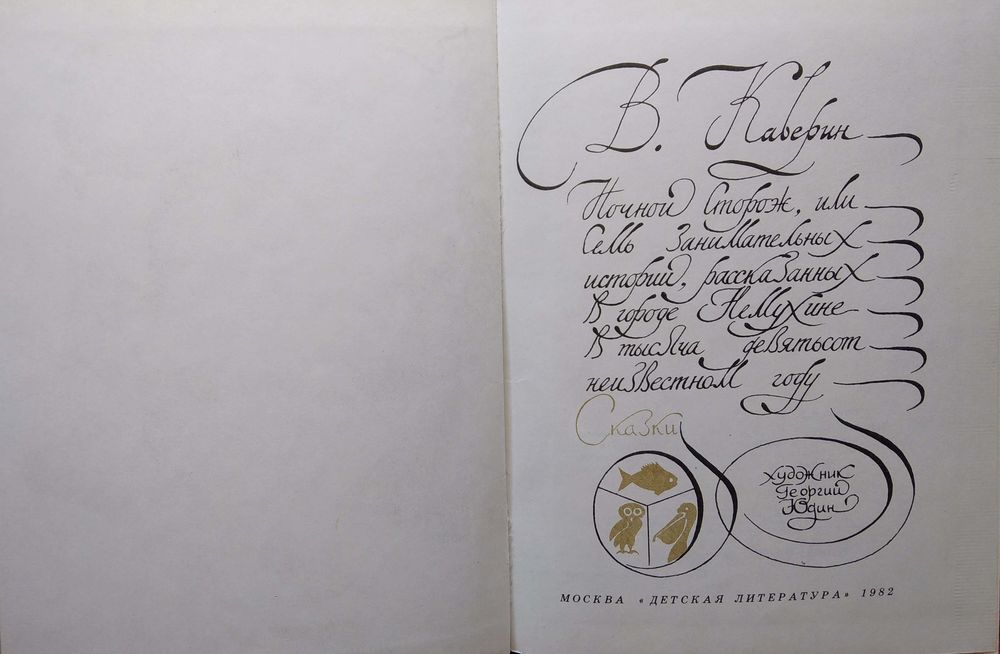 В. Каверин
Ночной Сторож, или
Семь Занимательных
историй, рассказанных
В городе Немухине
В тысяча девятьсот
неизвестном году
Сказки
художник
Георгий
Юдин
МОСКВА «ДЕТСКАЯ ЛИТЕРАТУРА» 1982